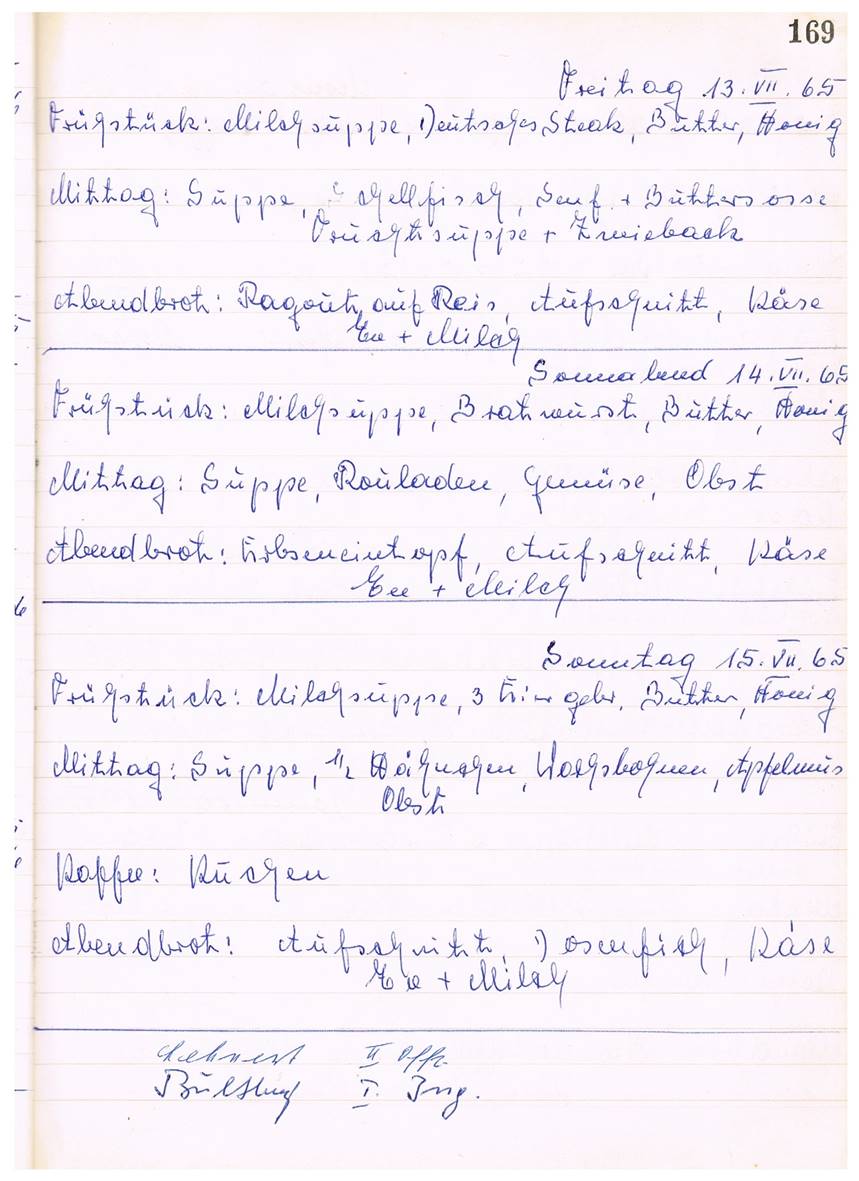 169
Freitag 13. VII. 65
Frühstück: Milchsuppe, Deutsches Steak, Butter, Honig
Mittag: Suppe, Schellfisch, Senf + Buttersosse
Fruchtsuppe + Zwieback
Abendbrot: Ragout auf Reis, Aufschnitt, Käse
Tee + Milch
Sonnabend 14. VII. 65
Frühstück: Milchsuppe, Bratwurst, Butter, Honig
Mittag: Suppe, Rouladen, Gemüse, Obst
Abendbrot: Erbseneintopf, Aufschnitt, Käse
Tee + Milch
Sonntag 15. VII. 65
Frühstück: Milchsuppe, 3 Eier gebr., Butter, Honig
Mittag: Suppe, 1/2 Hähnchen, Wachsbohnen, Apfelmus
Obst
Kaffee: Kuchen
Abendbrot: Aufschnitt, Dosenfisch, Käse
Tee + Milch
II Offz.
I. Ing.